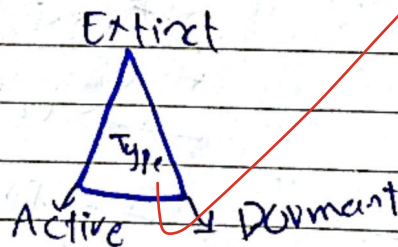 Extinct
Type
Active Dormant